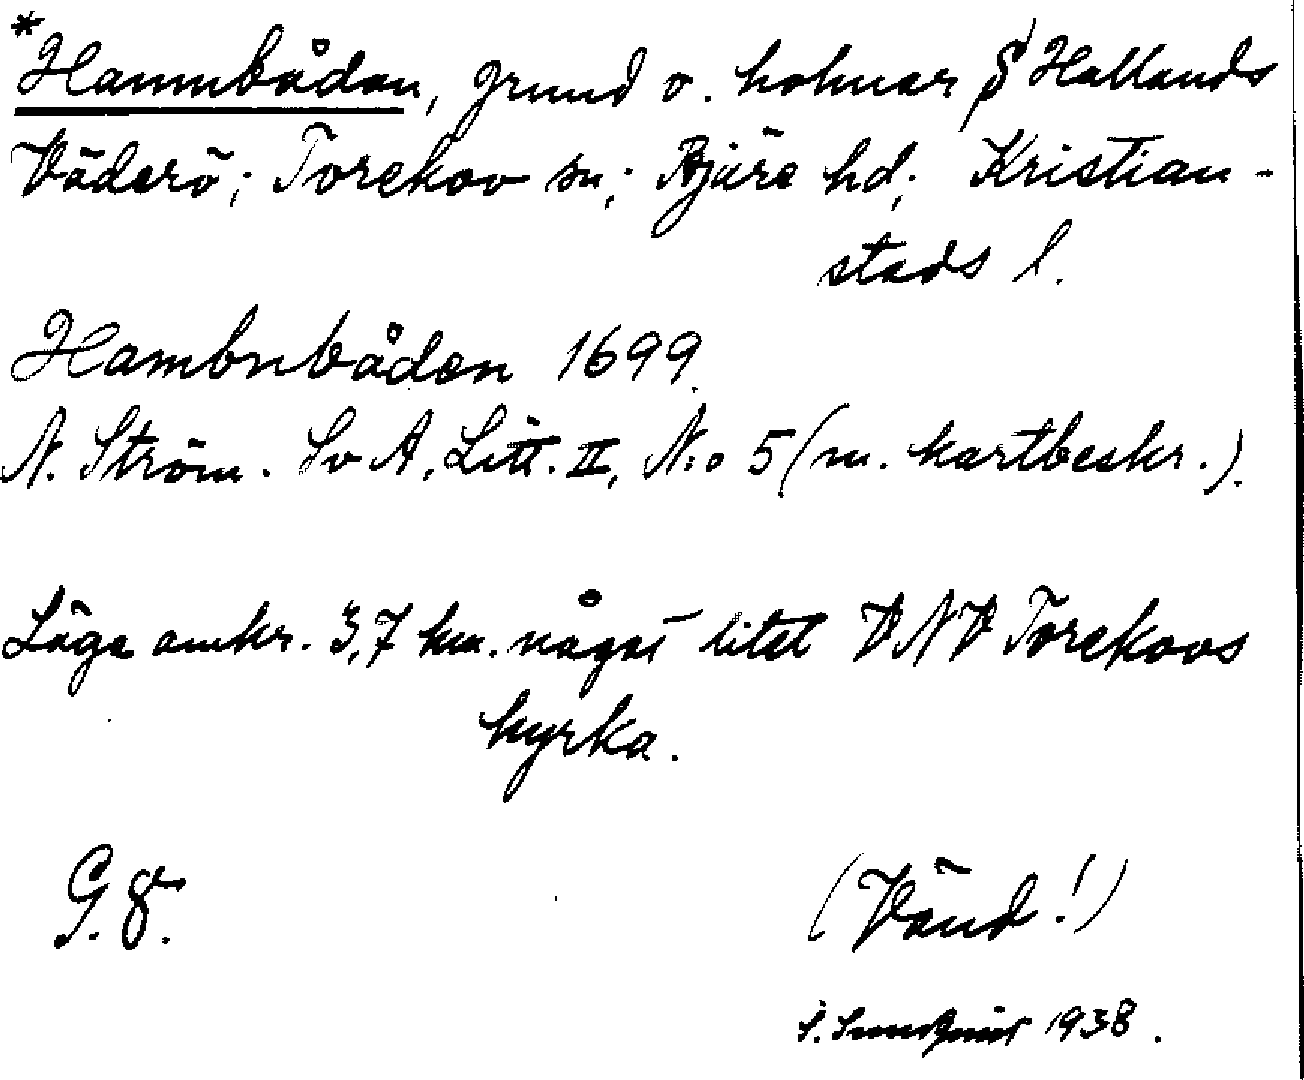 *Hamnbådan, grund o. holmar § Hallands
Väderö; Torekov sn; Bjäre hd; Kristian-
stads l.
Hambnbåden 1699.
N. Ström. Sv A, Litt. II, N:o 5 (m. kartbeskr.).
Läge omkr. 3,7 km. något litet VNV Torekovs
kyrka.
G. 8.
(Vänd!)
1938.